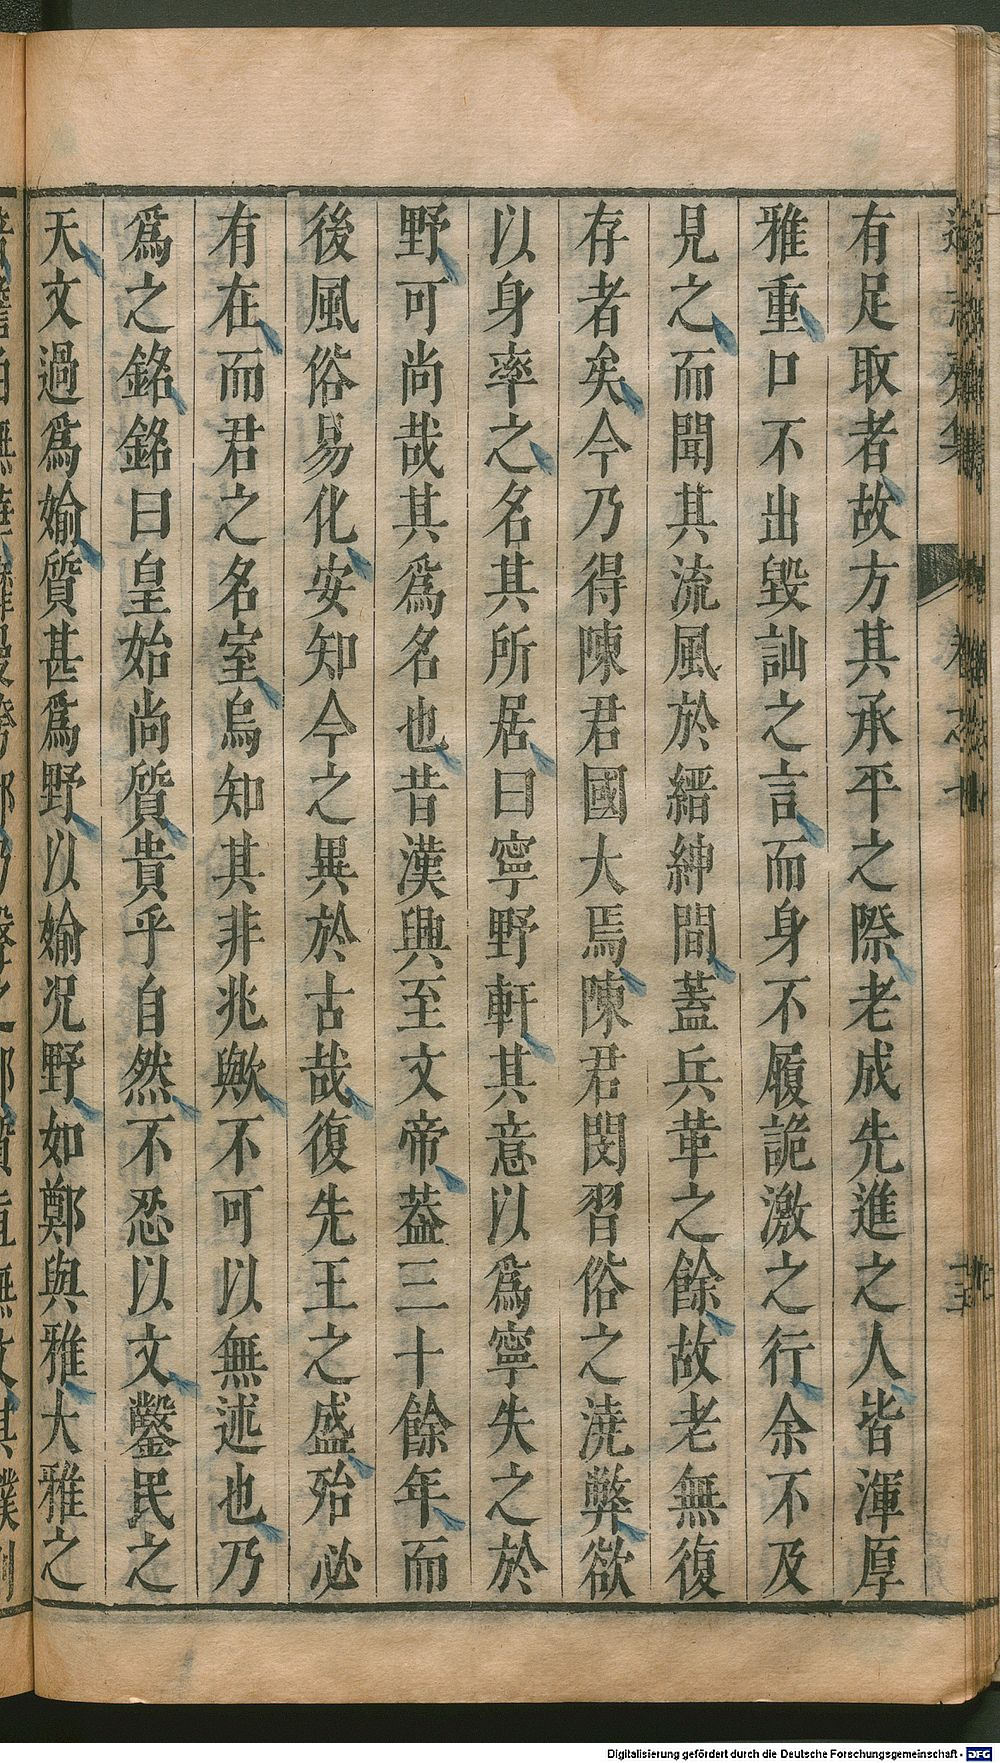 有足取者故方其承平之際老成先進之人皆渾厚
雅重口不出毀訕之言而身不履詭激之行余不及
見之而聞其流風於縉紳間蓋兵革之餘故老無復
存者矣今乃得陳君國大焉陳君閔習俗之澆弊欲
以身率之名其所居曰寧野軒其意以爲寧失之於
野可尚哉其爲名也昔漢興至文帝葢三十餘年而
後風俗易化安知今之異於古哉復先王之盛殆必
有在而君之名室烏知其非兆歟不可以無述也乃
爲之銘銘曰皇始尚質貴乎自然不忍以文鑿民之
天文過爲媮質甚爲野以媮況野如鄭與雅大雅之
Digitalisierung gefördert durch die Deutsche Forschungsgemeinschaft - DFG